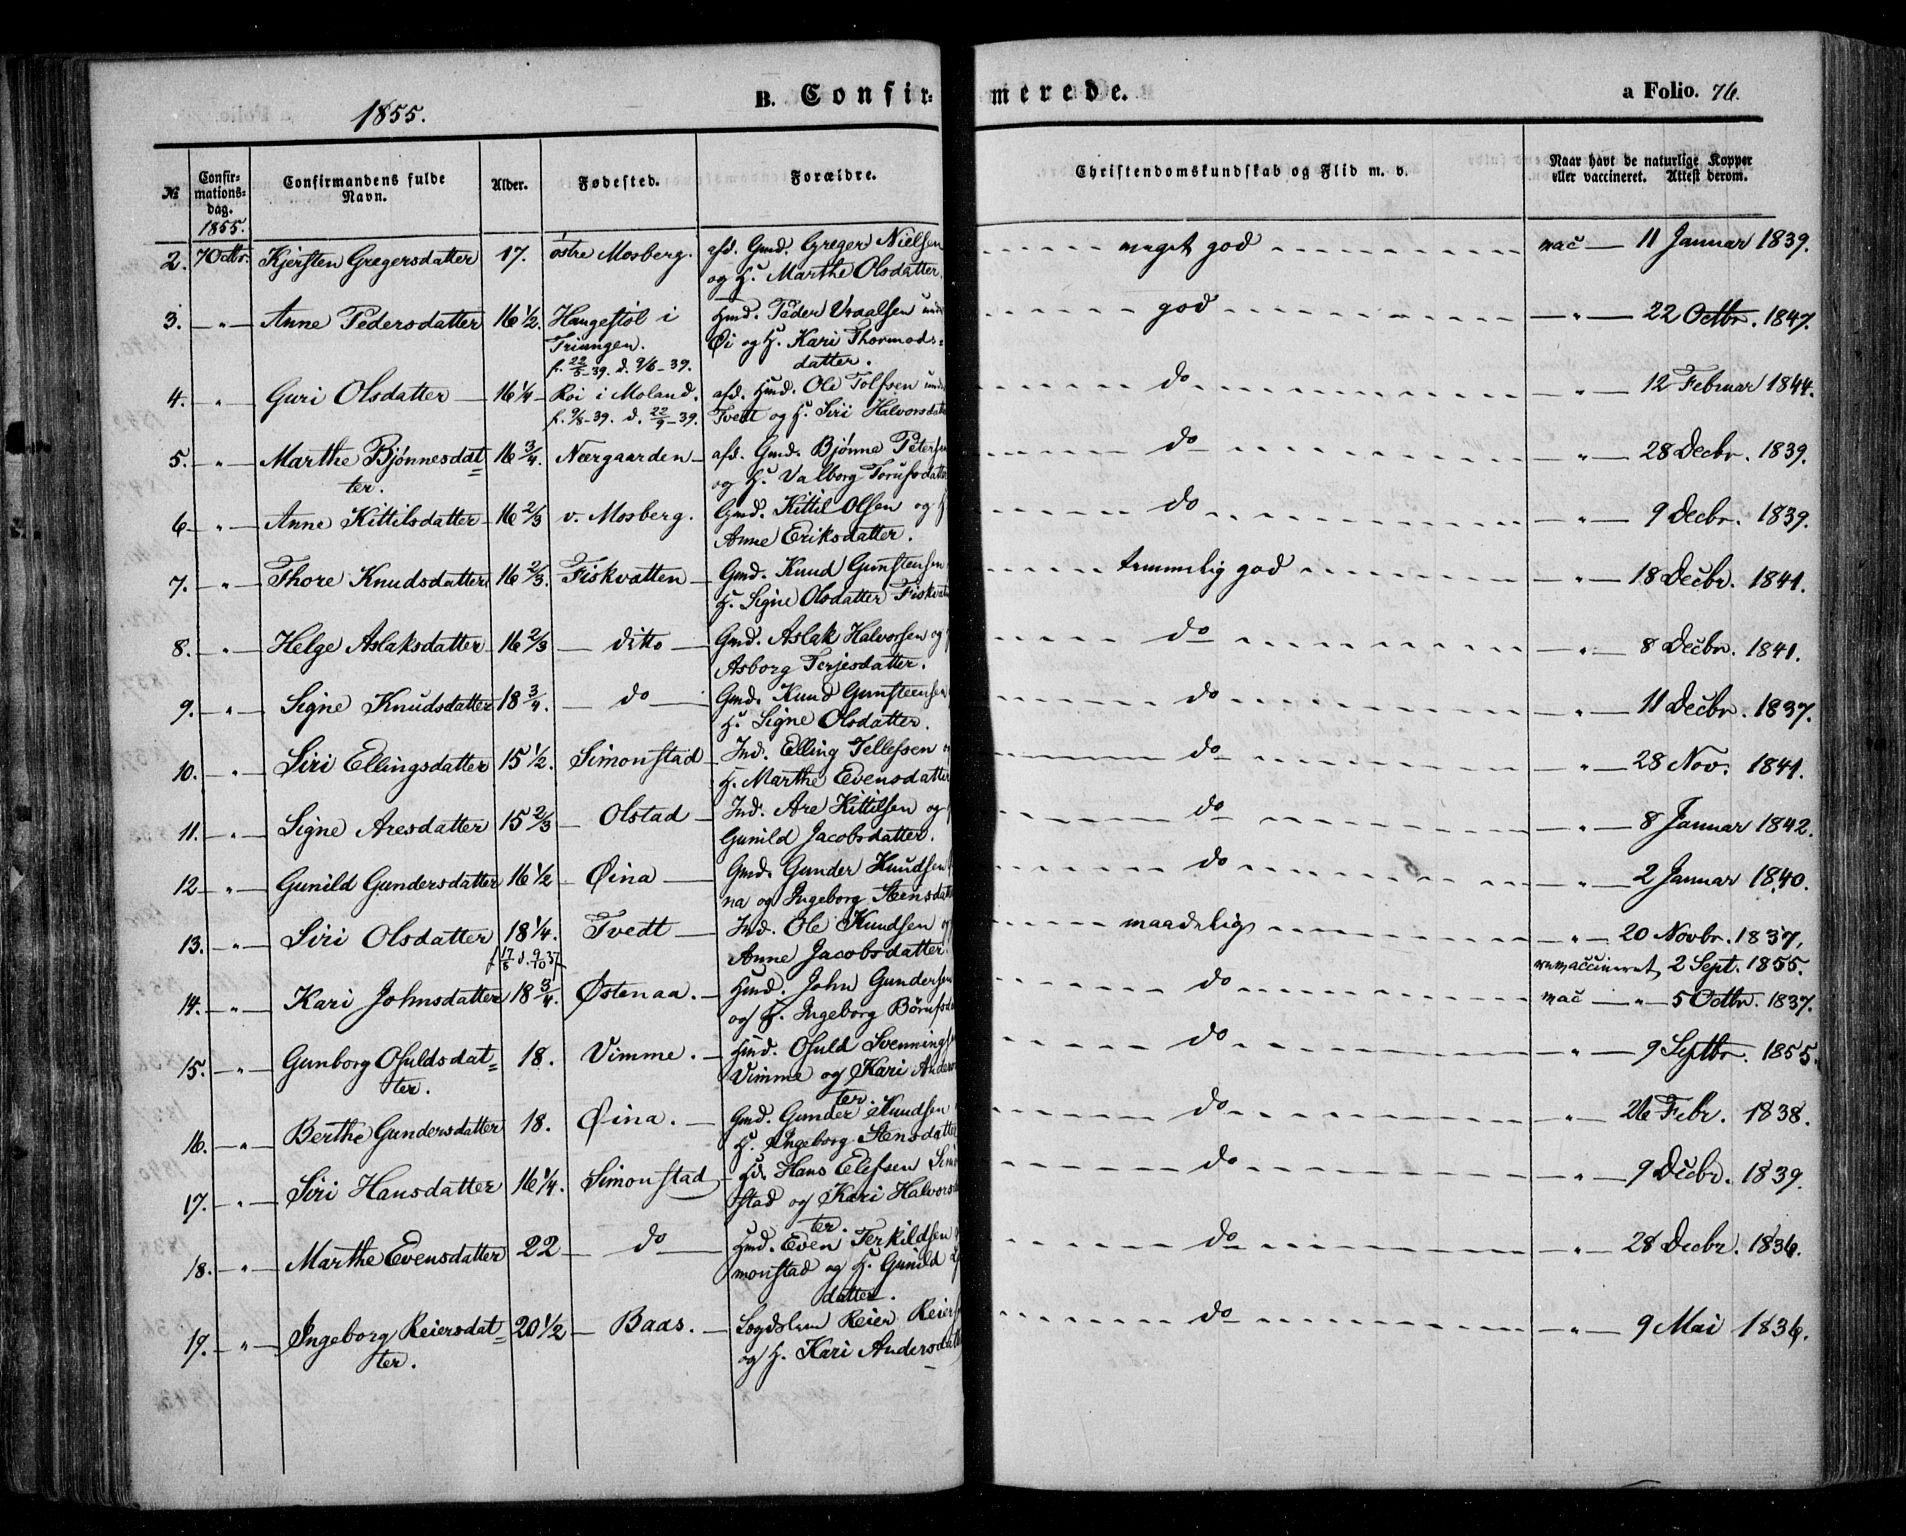 1855.
B. Confirmerede.
a Folio. 76.
№
Confirmationsdag.
Confirmandens fulde Navn.
Alder.
Fødested.
Forældre.
Christendomskundskab og Flid m. v.
Naar havt de naturlige Kopper eller vaccineret. Attest derom.
1855.
2. 7 Octbr. Kjersten Gregersdatter 17. østre Mosberg. afd. Gmd. Greger Nielsen meget god vac — 11 Januar 1839.
og H. Marthe Olsdatter.
3. — " — Anne Pedersdatter 16 1/2. Haugestøl i Hmd. Peder Vraalsen god — " — 22 Octbr. 1847.
Triungen. Øi og H. Kari Thormods=
f. 22/5-39. d. 9/6-39. datter.
4. " Guri Olsdatter 16 1/4 Roi i Moland. afd. Hmd. Ole Tolfsen do " — 12 Februar 1844.
f. 9/8-39. d. 22/9-39. Tvedt og H. Siri Halvorsdatter
5. — " — Marthe Bjønnesdat= 16 3/4. Nærgaarden afd. Gmd. Bjønne Petersen do — " — 28 Decbr. 1839.
ter. og H. Valborg Torufsdatter
6 — " — Anne Kittilsdatter 16 2/3 v. Mosberg. Gmd. Kittil Olsen og H. do — " — 9 Decbr. 1839.
Anne Eriksdatter.
7. — " — Thore Knudsdatter 16 2/3. Fiskvatten Gmd. Knud Gunstensen temmelig god — " — 18 Decbr. 1841.
H. Signe Olsdatter Fiskvatn
8. — " — Helge Aslaksdatter 16 2/3 — ditto — Gmd. Aslak Halvorsen og do — " — 8 Decbr. 1841.
Asborg Terjesdatter.
9. — " — Signe Knudsdatter 18 3/4. — do — Gmd. Knud Gunsteensen do — " — 11 Decbr. 1837.
H. Signe Olsdatter.
10. — " — Siri Ellingsdatter 15 1/2. Simonstad Ind. Elling Tellefsen do — " — 28 Nov. 1841.
H. Marthe Evensdatter
11. — " — Signe Aresdatter 15 2/3 — Olstad — Ind. Are Kittilsen og do — " — 8 Januar 1842.
Gunild Jacobsdatter.
12 — " — Gunild Gundersdatter 16 1/2 — Øina — Gmd. Gunder Knudsen do " — 2 Januar 1840.
na og Ingeborg Stensdatter
13. — " — Siri Olsdatter 18 1/4. Tvedt — Ind. Ole Knudsen maadelig — " — 20 Novbr. 1837,
f 17/8 d. 9/10 37 Anne Jacobsdatter revaccineret 2 Sept. 1855.
14. — " — Kari Johnsdatter 18 3/4. Østenaa. — Hmd. John Gundersen do vac — " — 5 Octbr. 1837.
og H. Ingeborg
15. — " — Gunborg Osuldsdat= 18. Vimme. — Hmd. Osuld Svennings do " — 9 Septbr. 1855.
ter. Vimme og Kari
ter.
16. — " — Berthe Gundersdatter 18. Øina. — Gmd. Gunder Knudsen do " — 26 Febr. 1838.
H. Ingeborg Stensdatter
17. — " — Siri Hansdatter 16 1/4. Simonstad Hd. Hans Elefsen Simon do " — 9 Decbr. 1839.
stad og Kari Halvorsdat
ter.
18. — " — Marthe Evensdatter 22 — do — Hmd. Even Terkildsen do — " — 28 Decbr. 1836.
monstad og H. Gunild
datter.
19. " Ingeborg Reiersdat= 20 1/2 — Baas. — Lægdslem Reier Reiers do — " — 9 Mai 1836.
ter. og H. Kari Andersdatter